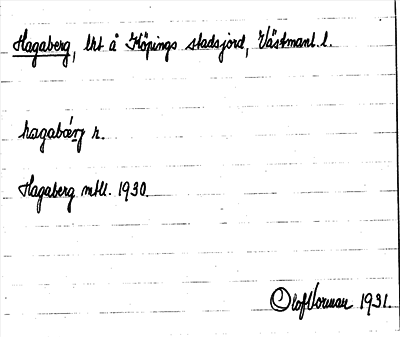 Hagaberg, lht å Köpings stadsjord, Västmanl. l.
hagabærj h.
Hagaberg mtll. 1930.
Olof Vorman 1931.